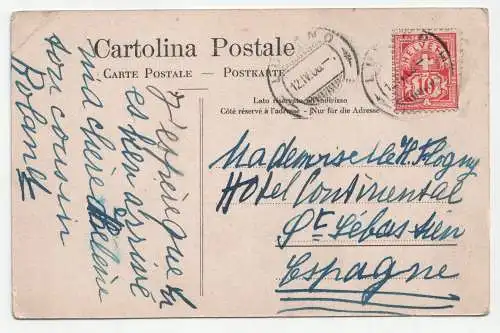 Cartolina Postale
CARTE POSTALE - POSTKARTE
Lato riservato all'indirizzo
Côté réservé à l'adresse - Nur für die Adresse
HELVETIA
10
12.IV.06
J'espère que tu
es bien arrivé
ma chère Hélène
ton cousin
Roland
Mademoiselle H.
Hôtel Continental
St. Sébastien
Espagne